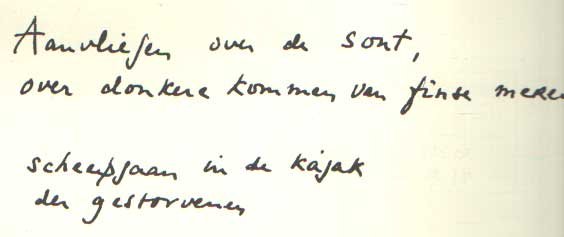 Aanvliegen over de sont,
over donkere kommen van finse meren
scheepgaan in de kajak
der gestorvenen